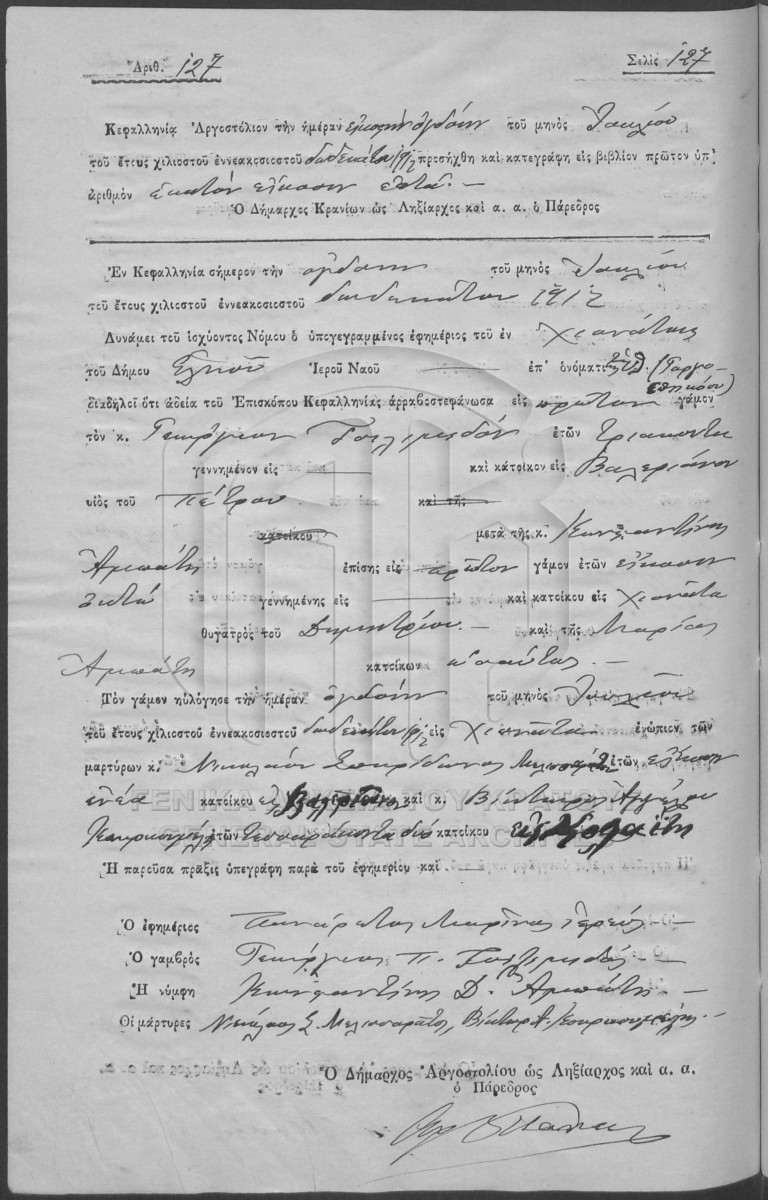 Ἀριθ. 127
Σελὶς 127
Κεφαλληνίᾳ Ἀργοστόλιον τὴν ἡμέραν εἰκοστὴν ὀγδόην τοῦ μηνὸς Ἰουλίου
τοῦ ἔτους χιλιοστοῦ ἐννεακοσιοστοῦ δωδεκάτου προσήχθη καὶ κατεγράφη εἰς βιβλίον πρῶτον ὑπ'
ἀριθμὸν ἑκατὸν εἴκοσιν ἑπτά. —
Ὁ Δήμαρχος Κρανίων ὡς Ληξίαρχος καὶ α. α. ὁ Πάρεδρος
Ἐν Κεφαλληνίᾳ σήμερον τὴν ὀγδόην τοῦ μηνὸς Ἰουλίου
τοῦ ἔτους χιλιοστοῦ ἐννεακοσιοστοῦ δωδεκάτου 1912
Δυνάμει τοῦ ἰσχύοντος Νόμου ὁ ὑπογεγραμμένος ἐφημέριος τοῦ ἐν Χιονάτοις
τοῦ Δήμου Ἰεροῦ Ναοῦ — ἐπ' ὀνόματι (Γοργο-
επηκόου)
διαδηλοῖ ὅτι ἀδείᾳ τοῦ Ἐπισκόπου Κεφαλληνίας ἀρραβοστεφάνωσα εἰς πρῶτον γάμον
τὸν κ. Γεώργιον ἐτῶν τριάκοντα
γεννημένον εἰς — καὶ κάτοικον εἰς Βαλεριάνον
υἱὸς τοῦ Πέτρου καὶ τῆς
κατοίκου μετὰ τῆς κ. Κωνσταντίνης
Ἀμπάτη ἐπίσης εἰς πρῶτον γάμον ἐτῶν εἴκοσιν
ὀκτὼ γεννημένης εἰς — καὶ κατοίκου εἰς Χιονάτα
θυγατρὸς τοῦ Δημητρίου. — καὶ τῆς Μαρίας
Ἀμπάτη κατοίκων ὡσαύτως. —
Τὸν γάμον ηὐλόγησε τὴν ἡμέραν ὀγδόην τοῦ μηνὸς Ἰουλίου
τοῦ ἔτους χιλιοστοῦ ἐννεακοσιοστοῦ δωδεκάτου εἰς Χιονάτα ἐνώπιον τῶν
μαρτύρων κ. Νικολάου Σπυρίδωνος Μελισσαράτου ἐτῶν εἴκοσιν
ἐννέα κατοίκου εἰς καὶ κ. Βίκτωρος Ἀγγέλου
ἐτῶν τεσσαράκοντα δύο κατοίκου εἰς
Ἡ παροῦσα πρᾶξις ὑπεγράφη παρὰ τοῦ ἐφημερίου καὶ —
Ὁ ἐφημέριος Πανάρετος Μαρῖνος ἱερεύς. —
Ὁ γαμβρὸς Γεώργιος Π. —
Ἡ νύμφη Κωνσταντίνη Δ. Ἀμπάτη. —
Οἱ μάρτυρες Νικόλαος Σ. Μελισσαρᾶτος, Βίκτωρ Α. —
Ὁ Δήμαρχος Ἀργοστολίου ὡς Ληξίαρχος καὶ α. α.
ὁ Πάρεδρος
ΓΕΝΙΚΑ ΑΡΧΕΙΑ ΤΟΥ ΚΡΑΤΟΥΣ
GENERAL STATE ARCHIVES